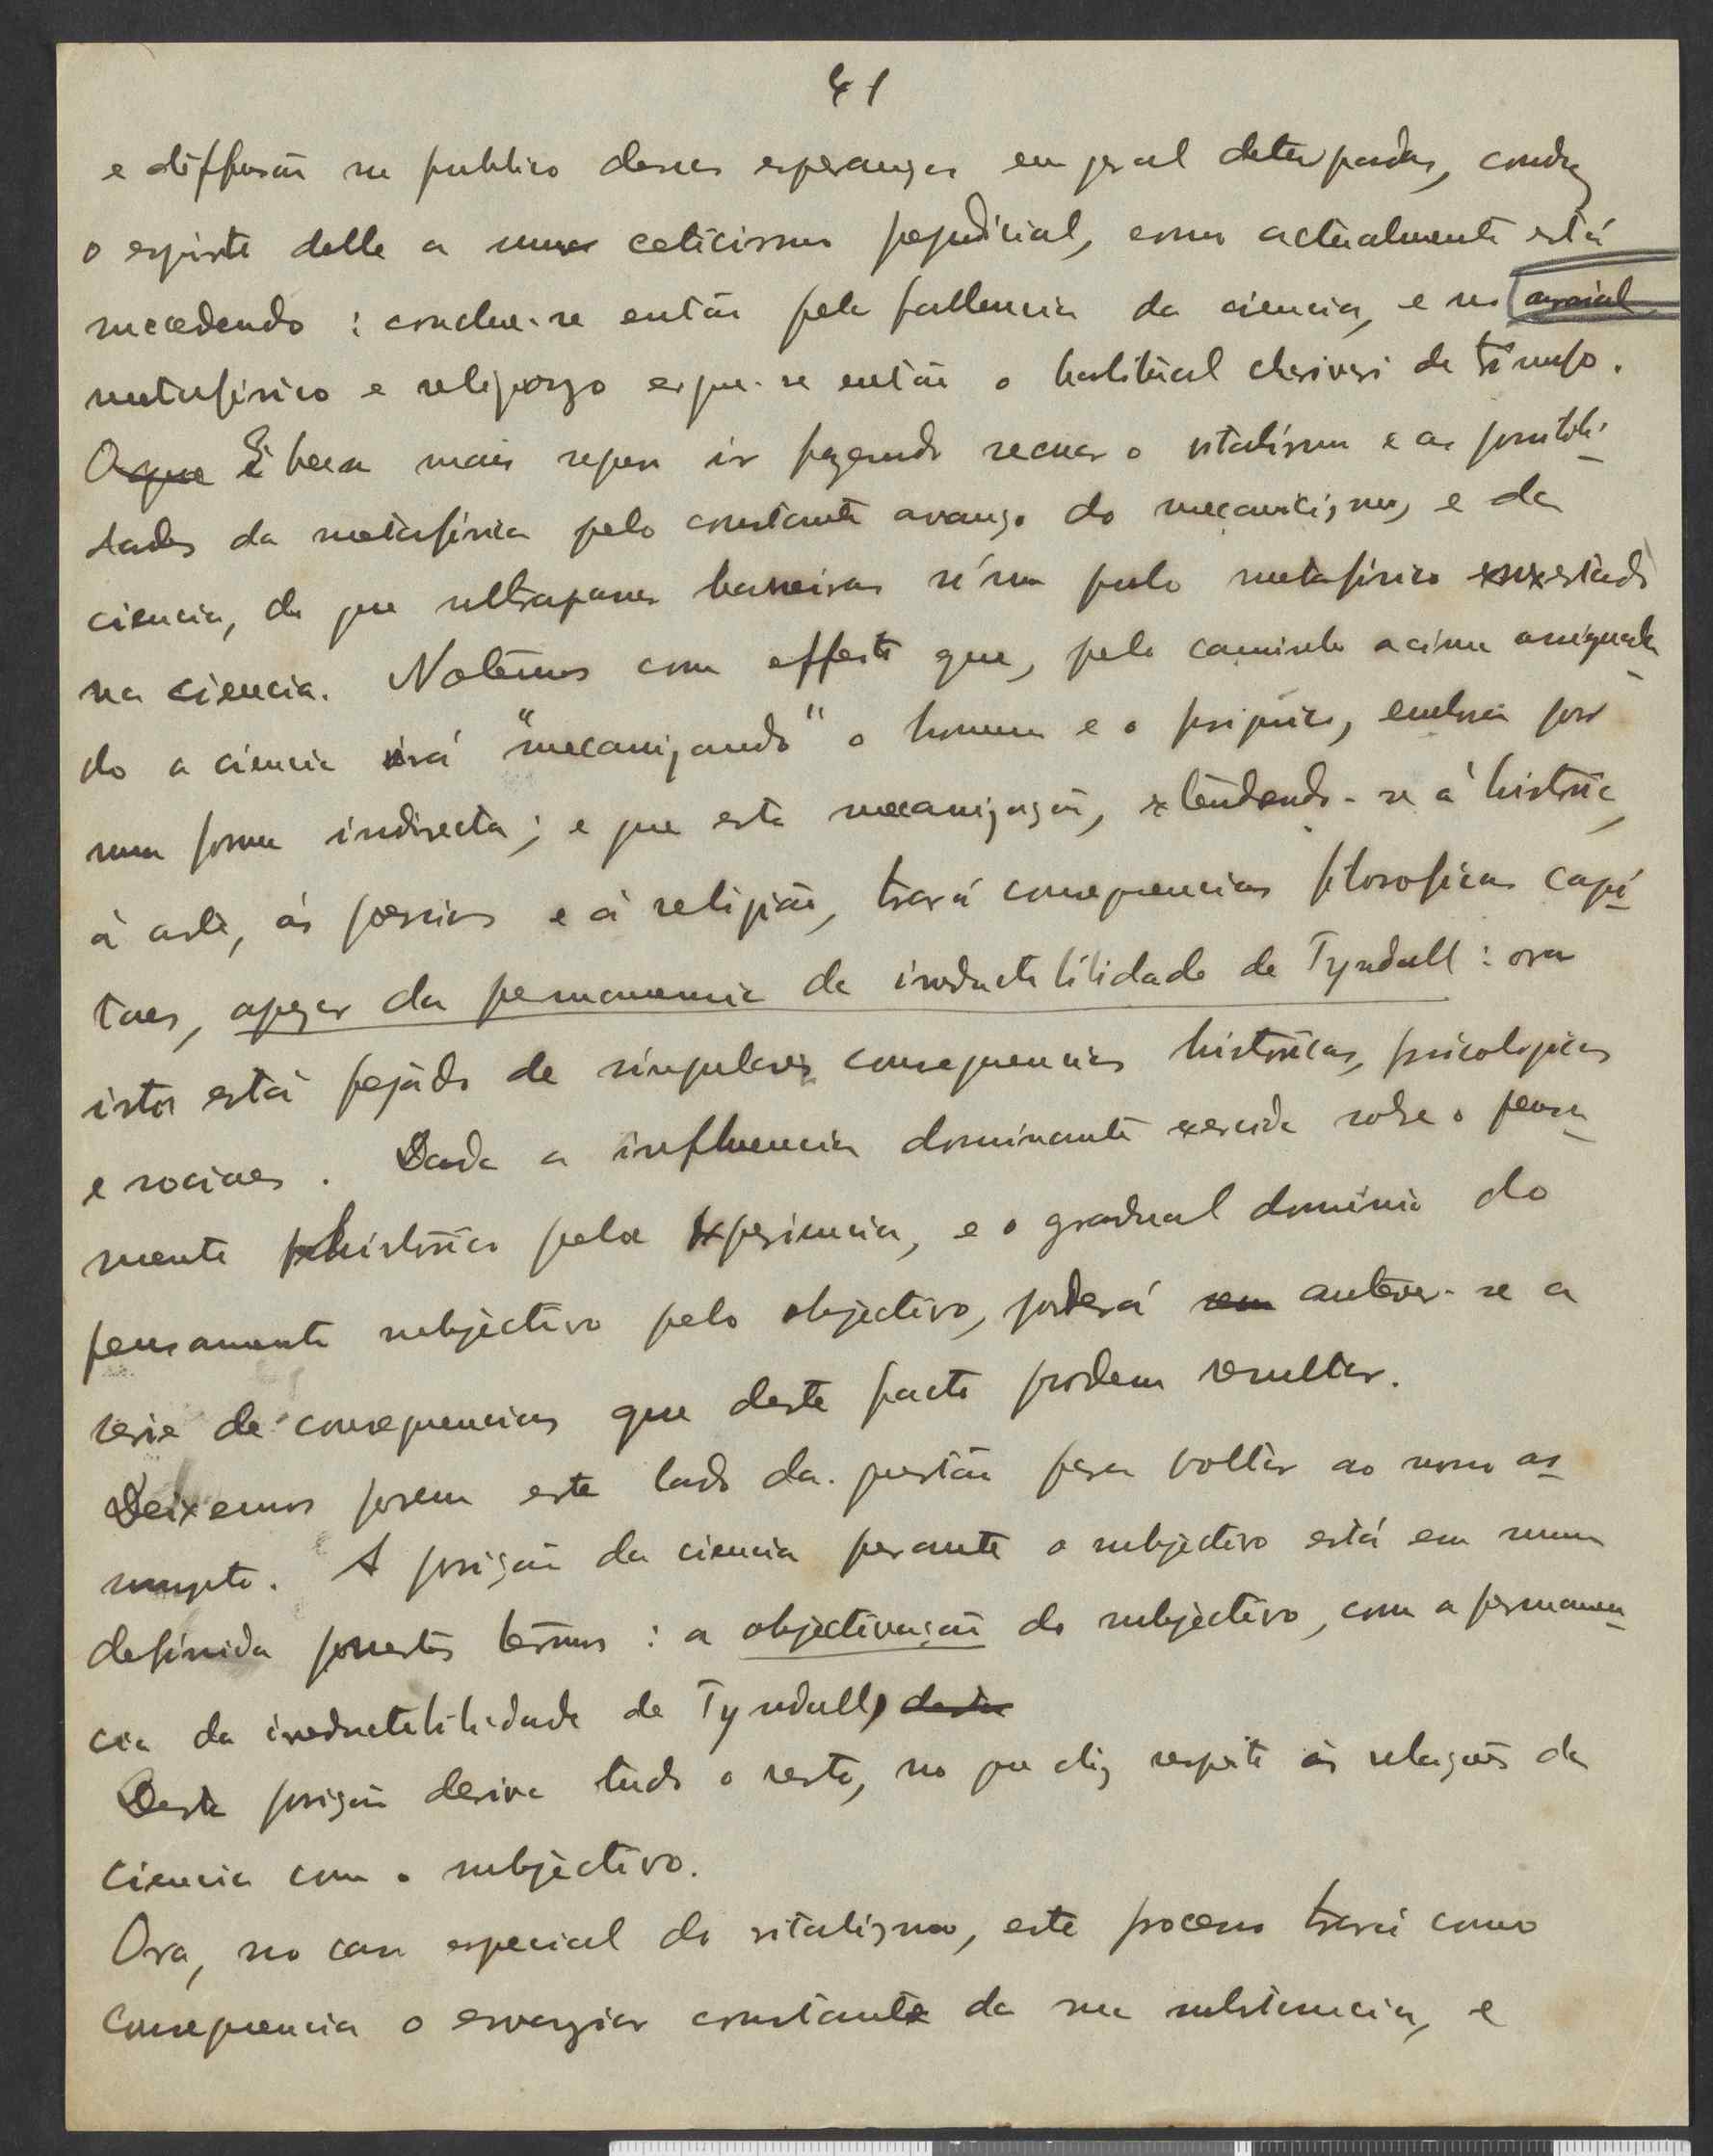 41
e diffusão no publico dessas esperanças em geral deturpadas, conduz
o espirito delle a um ceticismo prejudicial, como actualmente está
succedendo : conclue-se então pela fallencia da ciencia, e no arraial
metafisico e religioso ergue-se então o habitual charivari de triunfo.
O que É bem mais seguro ir fazendo recuar o vitalismo e as possibili-
dades da metafisica pelo constante avanço do mecanicismo, e da
ciencia, do que ultrapassar barreiras n'um pulo metafisico enxertado
na ciencia. Notemos com effeito que, pelo caminho acima assignala-
do a ciencia irá "mecanizando" o homem e o psiquico, embora por
uma forma indirecta; e que esta mecanização, extendendo-se á historia,
á arte, ás poesias e á religião, trará consequencias filosoficas capi-
taes, apezar da permanencia da irreductibilidade de Tyndall : ora
isto está pejado de singulares consequencias historicas, psicologicas
e sociaes. Dada a influencia dominante exercida sobre o pensa-
mento historico pela experiencia, e o gradual dominio do
pensamento subjectivo pelo objectivo, poderá antever-se a
serie de consequencias que deste facto podem resultar.
Deixemos porem este lado da questão para voltar ao nosso as-
sumpto. A posição da ciencia perante o subjectivo está em summa
definida por estes termos : a objectivação do subjectivo, com a permanen-
cia da irreductibilidade de Tyndall, desta
Desta posição deriva tudo o resto, no que diz respeito ás relações da
ciencia com o subjectivo.
Ora, no caso especial do vitalismo, este processo trará como
consequencia o esvaziar constante da sua substancia, e